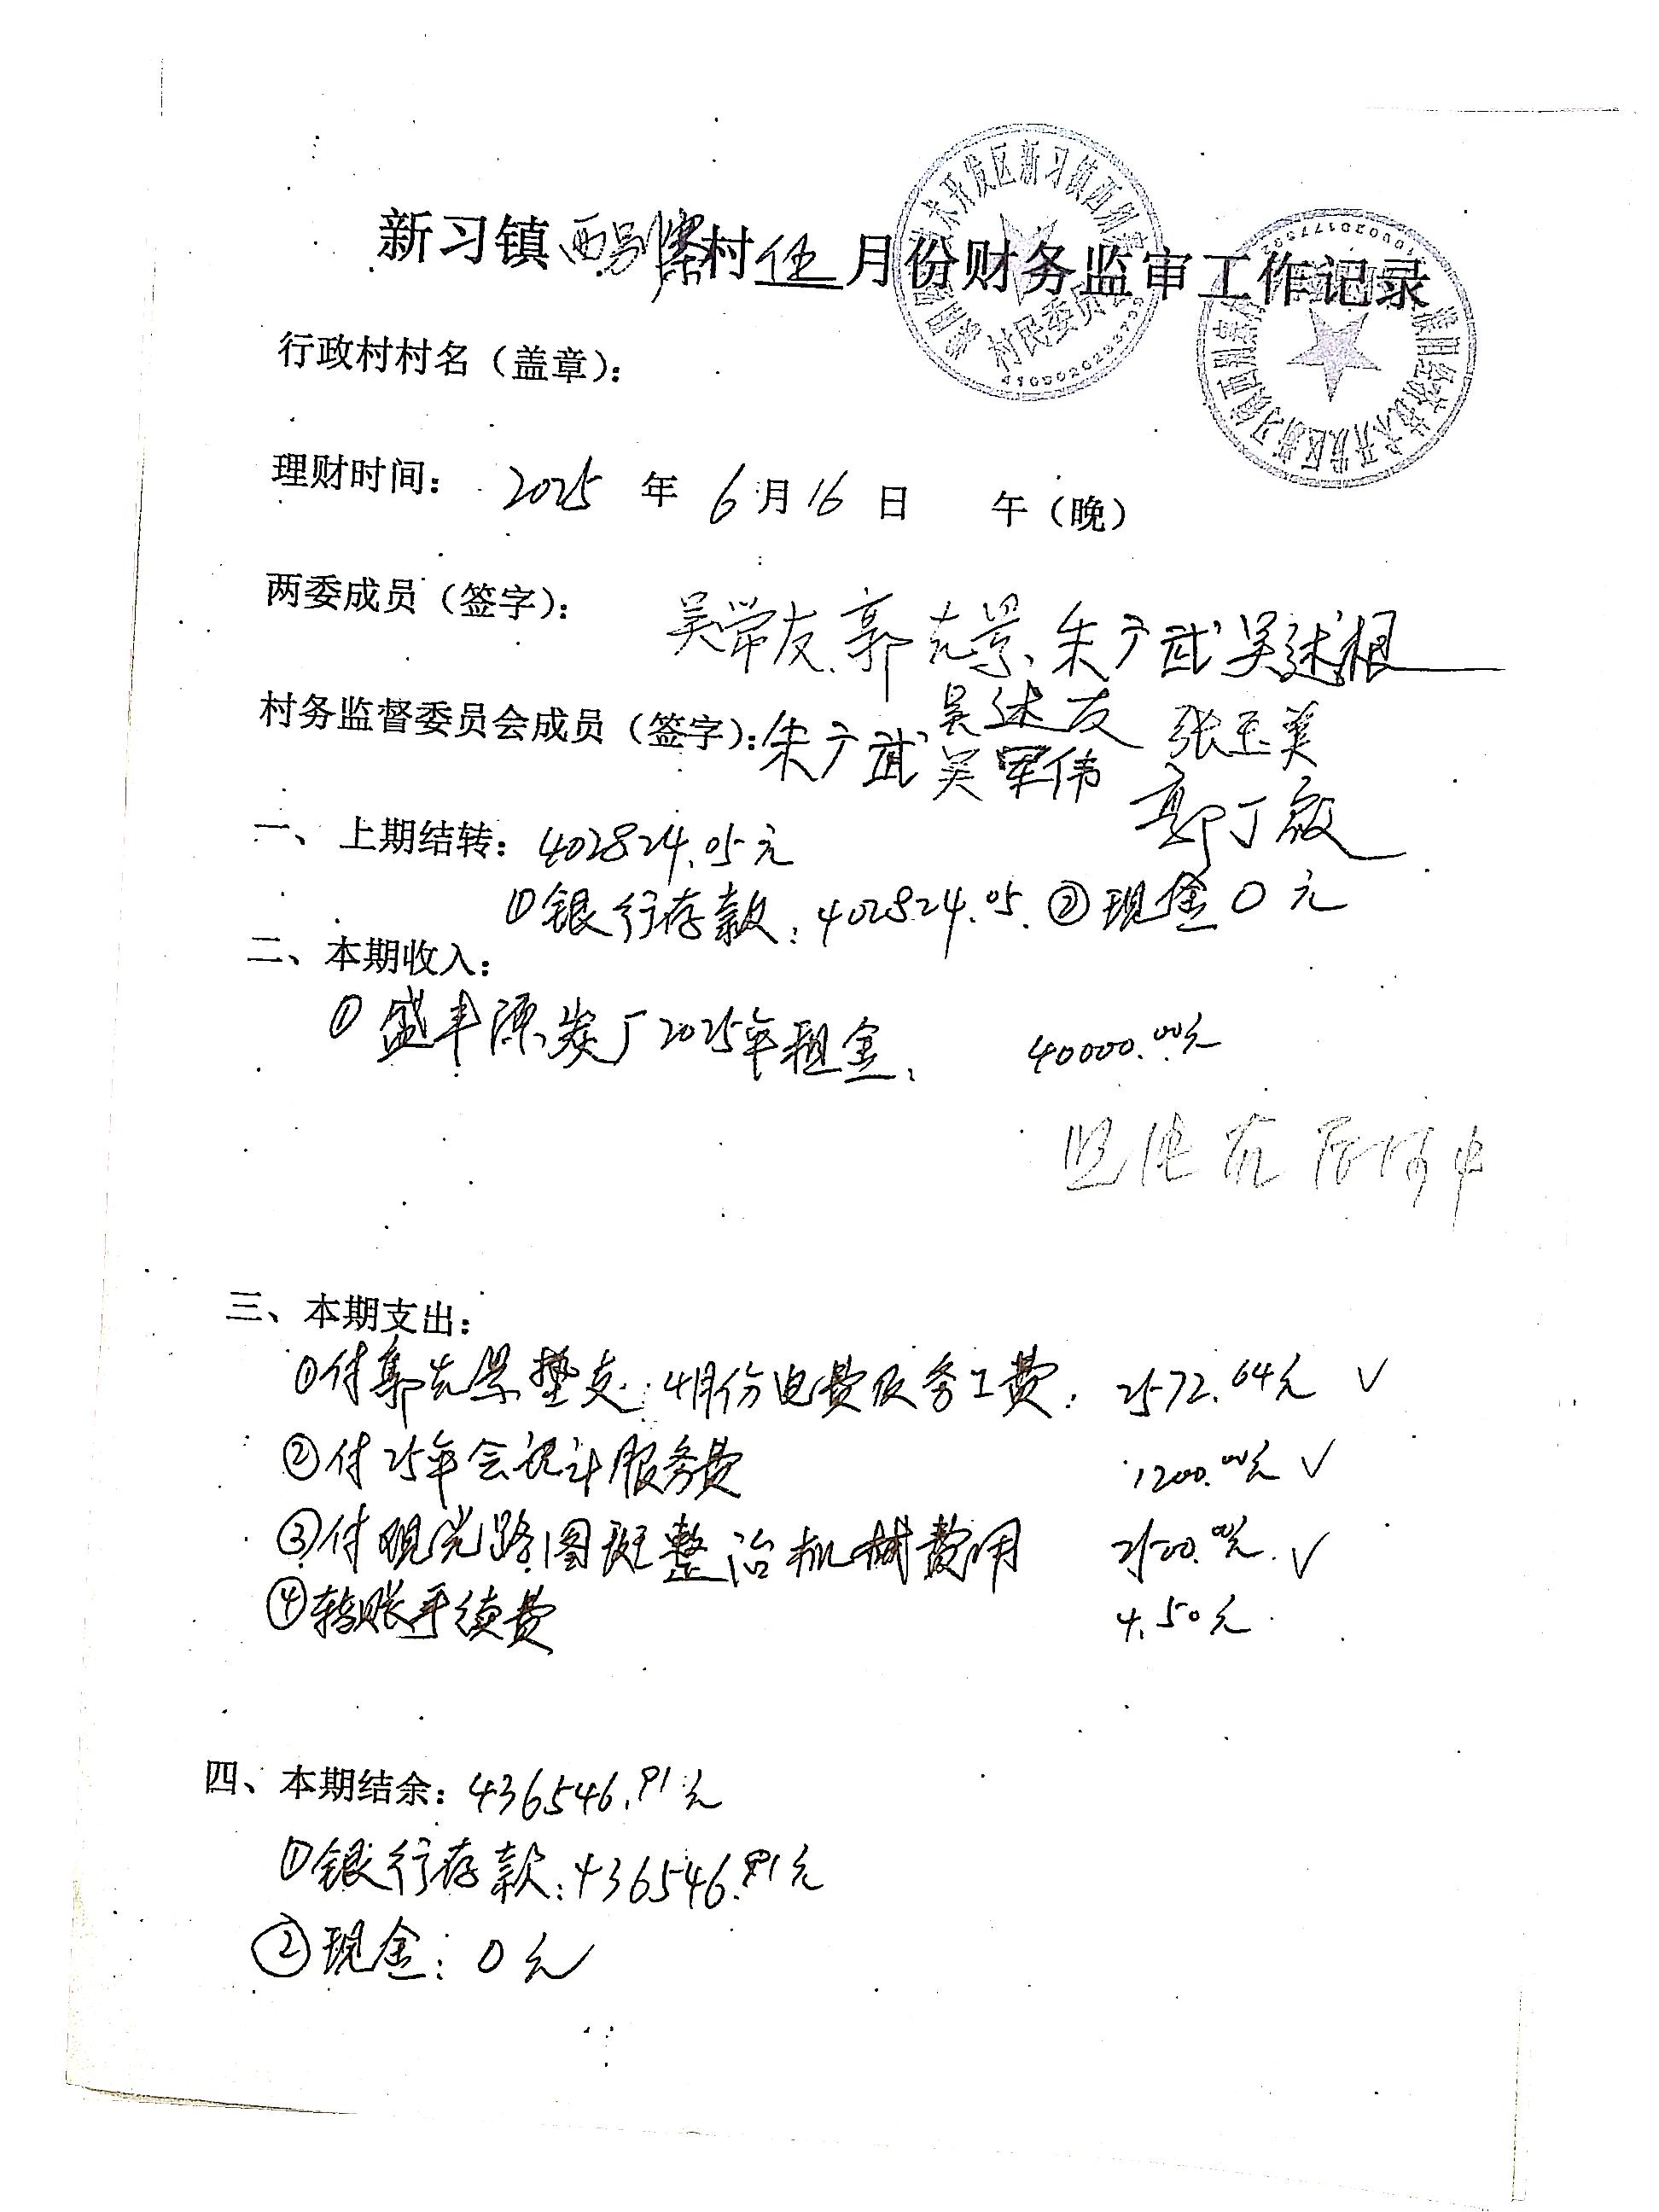 新习镇西别寨村伍月份财务监审工作记录
行政村村名（盖章）：
村民委员
理财时间： 2025 年 6月16日 午（晚）
两委成员（签字）： 吴学友、郭克景、朱广武 吴述根
村务监督委员会成员（签字）：朱广武 吴述友 张玉美
吴军伟 郭丁啟
一、上期结转：402824.05元
①银行存款：402824.05.②现金0元
二、本期收入：
①盛丰源炭厂2025年租金： 40000.00元
三、本期支出：
①付郭克景垫支：4月份电费及务工费： 2572.64元 √
②付25年会计服务费 1200.00元 √
③付观光路图斑整治机械费用 2500.00元. √
④转账手续费 4.50元
四、本期结余：436546.91元
①银行存款：436546.91元
②现金：0元